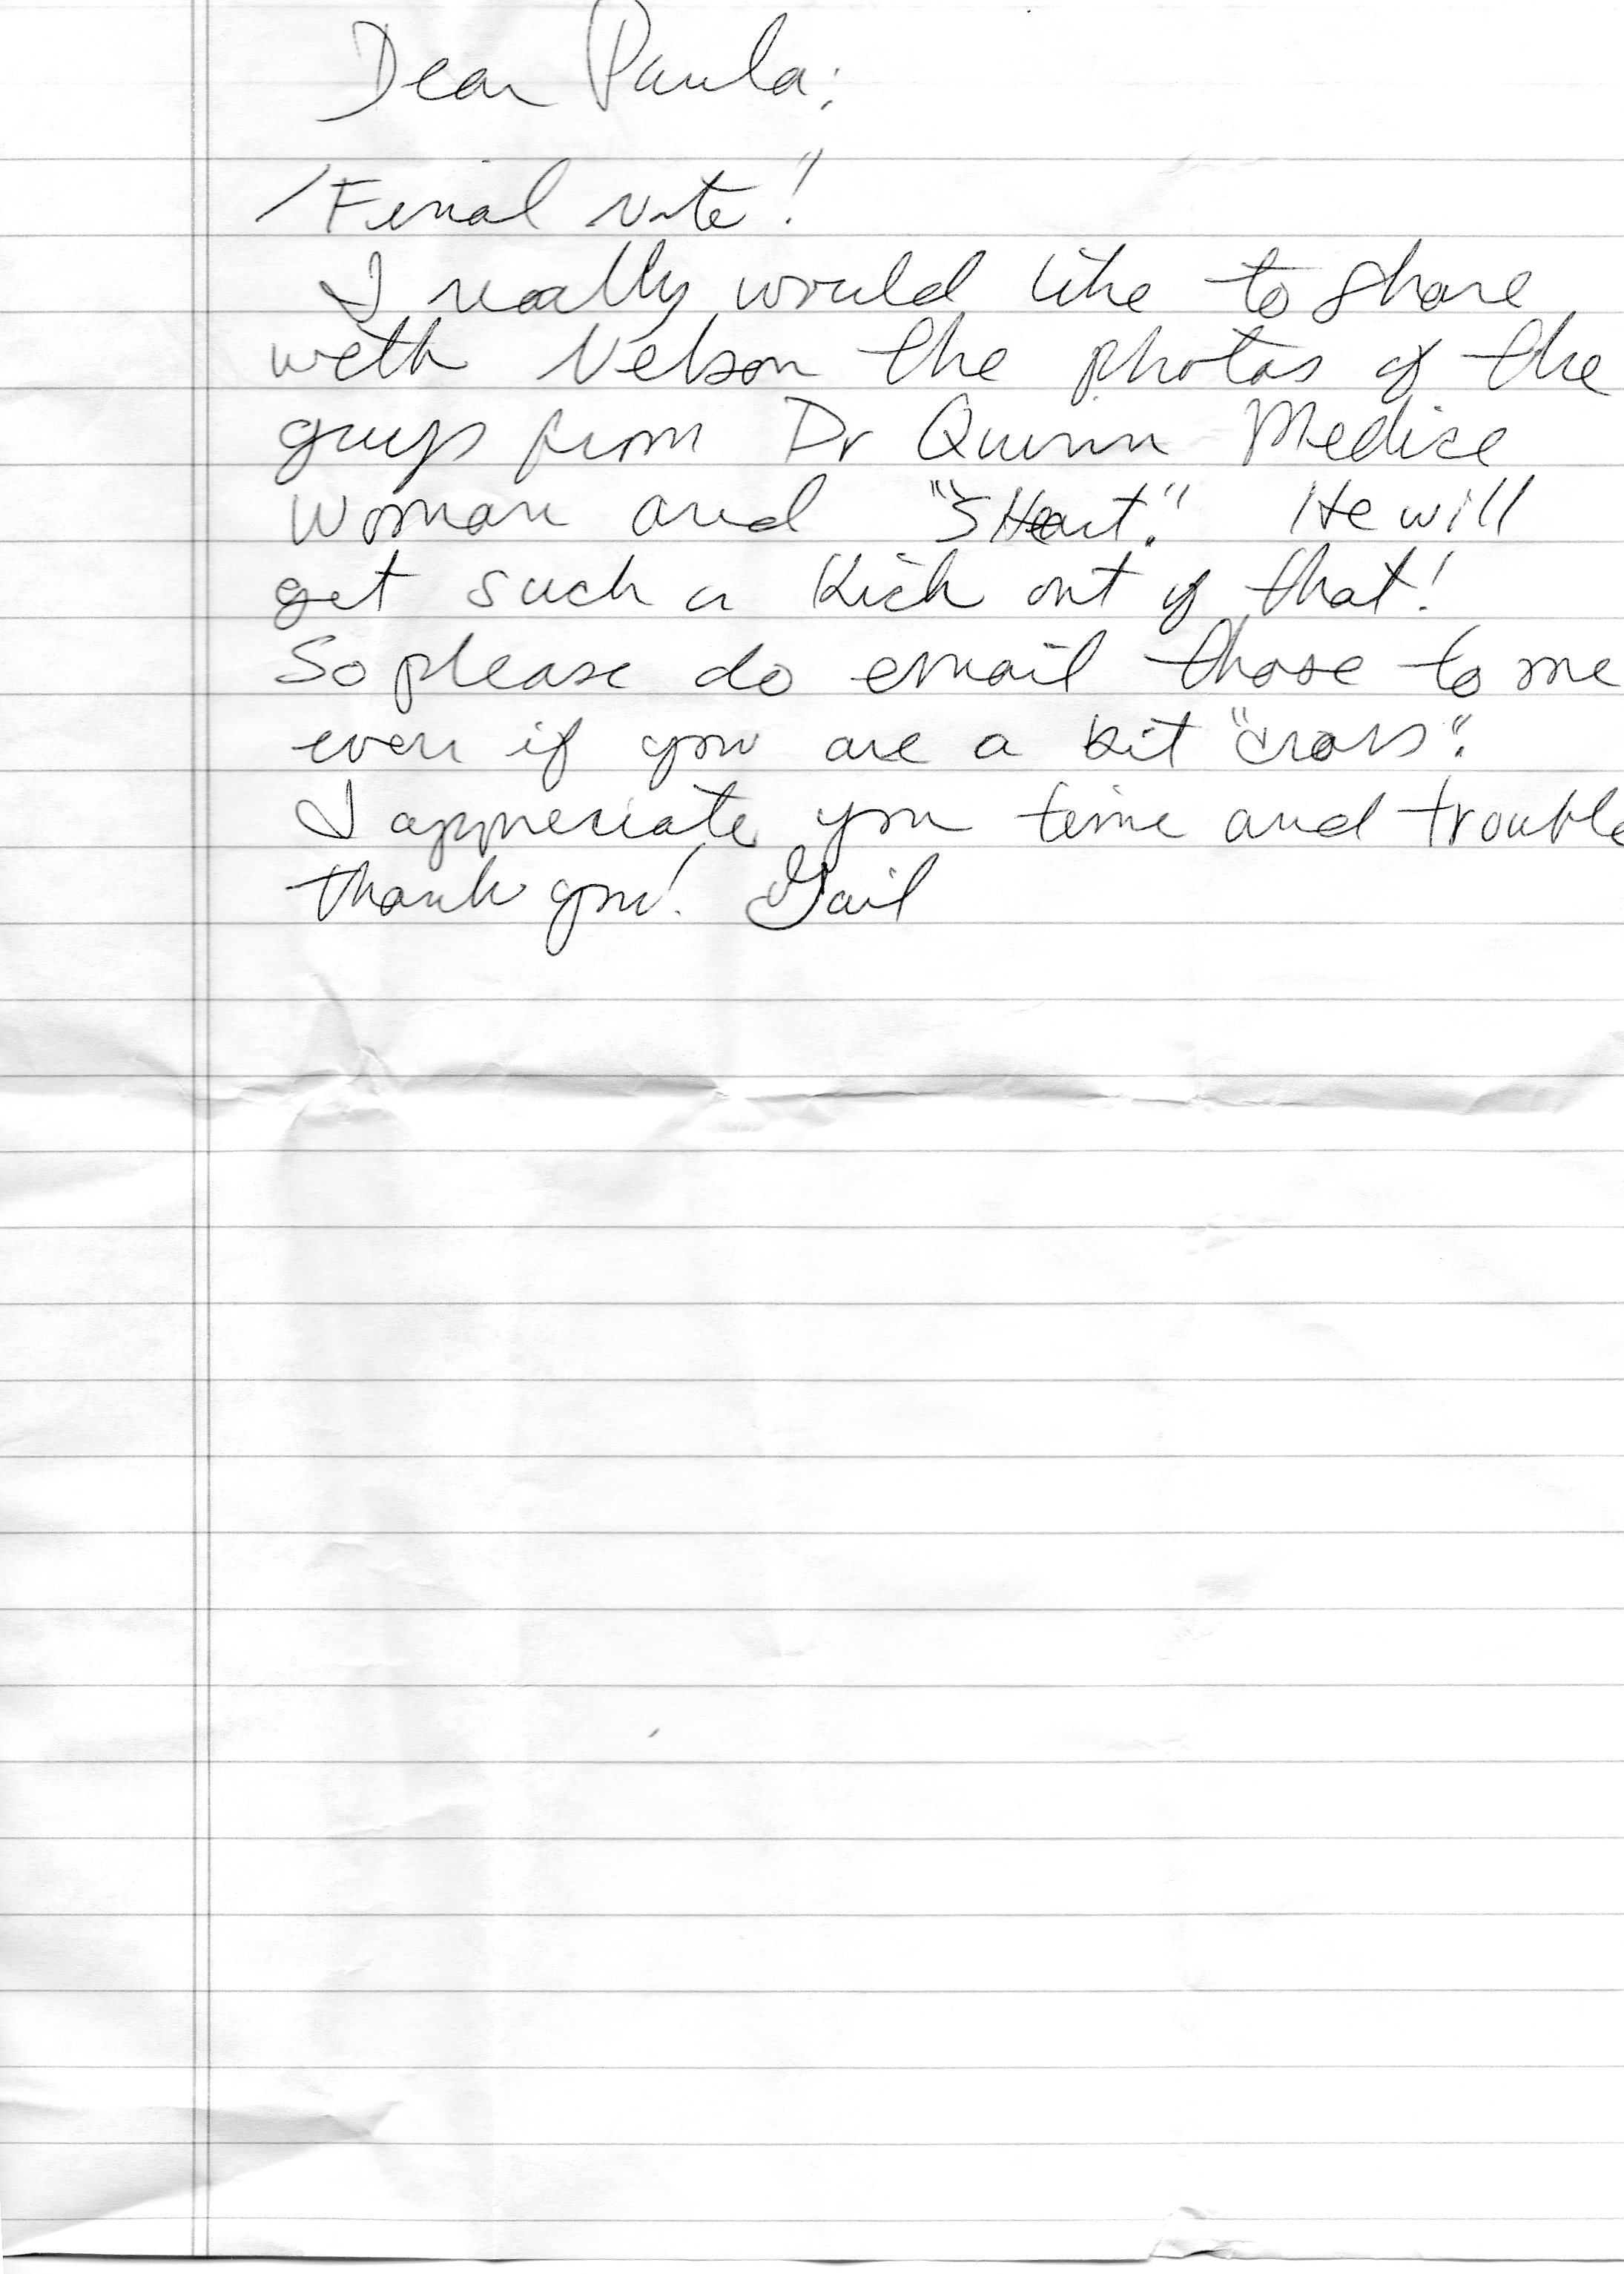 Dear Paula;
/Final note!
I really would like to share
with Nelson the photos of the
guys from Dr Quinn Medice
Woman and He will
get such a kick out of that!
So please do email those to me
even if you are a bit "cross".
I appreciate you time and trouble
thank you! Gail